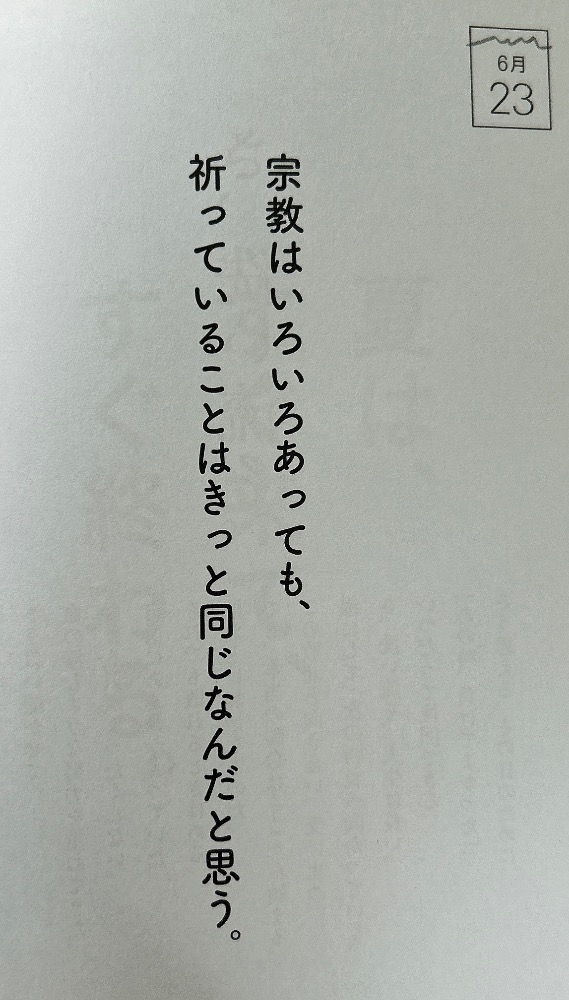 6月
23
宗教はいろいろあっても、
祈っていることはきっと同じなんだと思う。